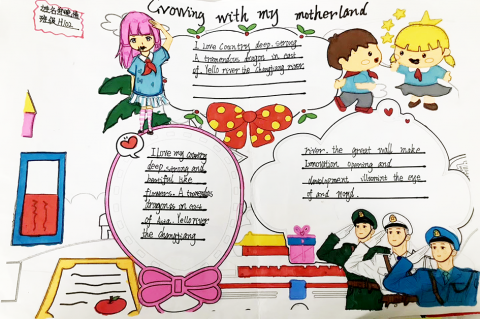 Growing with my motherland
I Love Country deep, strong
A tremendous dragon in east
of. Yello river the Changjiang river
I Love my country
deep, strong and
beautiful like
flowers. A tremendous
dragon is on east
of Asia. Yello river
the changjiang
river. the great wall make
Innovation opening and
development illumint the eye
of and